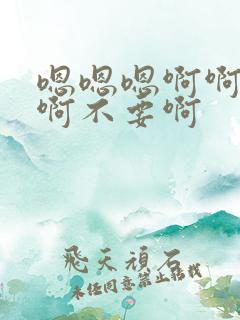 嗯嗯嗯啊啊
啊不要啊
飛天頑石
未经同意禁止转载